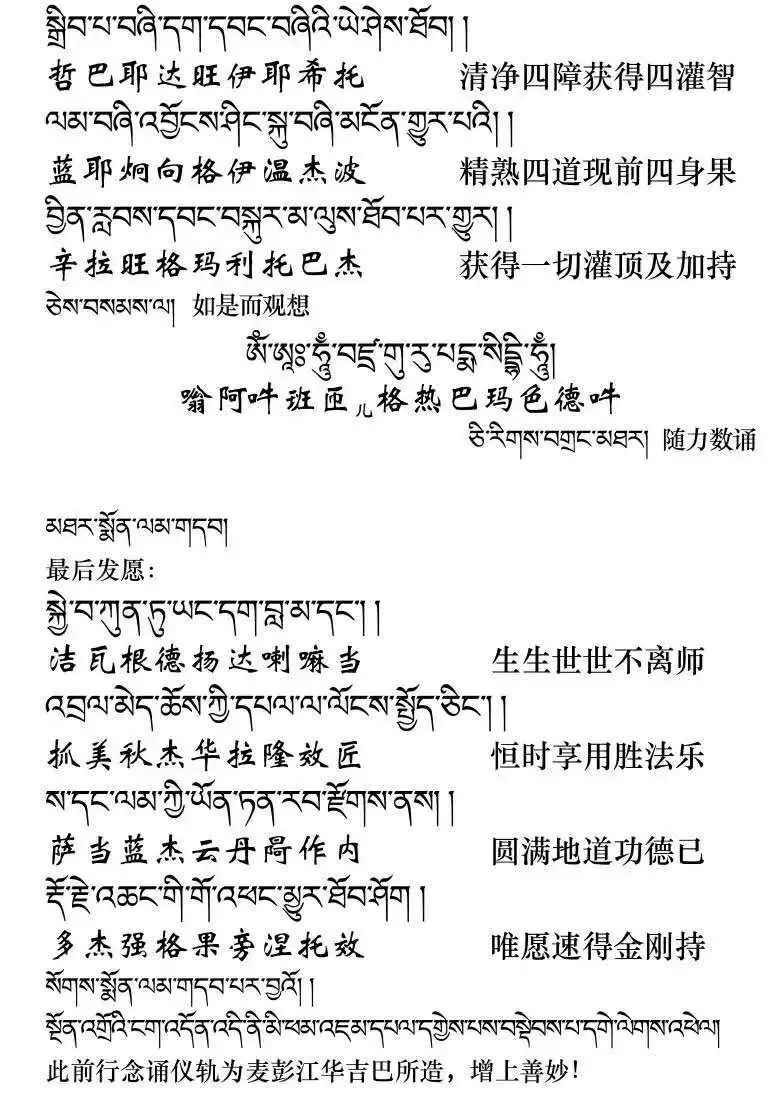 སྒྲིབ་པ་བཞི་དག་དབང་བཞིའི་ཡེ་ཤེས་ཐོབ། །
哲巴耶达旺伊耶希托 清净四障获得四灌智
ལམ་བཞི་འབྱོངས་ཤིང་སྐུ་བཞི་མངོན་གྱུར་པའི། །
蓝耶炯向格伊温杰波 精熟四道现前四身果
བྱིན་རླབས་དབང་བསྐུར་མ་ལུས་ཐོབ་པར་གྱུར། །
辛拉旺格玛利托巴杰 获得一切灌顶及加持
ཅེས་བསམས་ལ། 如是而观想
ཨོཾ་ཨཱཿ་ཧཱུྃ་བཛྲ་གུ་རུ་པདྨ་སིདྡྷི་ཧཱུྃ།
嗡阿吽班匝儿格热巴玛色德吽
ཅི་རིགས་བགྲང་མཐར། 随力数诵
མཐར་སྨོན་ལམ་གདབ།
最后发愿：
སྐྱེ་བ་ཀུན་ཏུ་ཡང་དག་བླ་མ་དང་། །
洁瓦根德扬达喇嘛当 生生世世不离师
འབྲལ་མེད་ཆོས་ཀྱི་དཔལ་ལ་ལོངས་སྤྱོད་ཅིང་། །
抓美秋杰华拉隆效匠 恒时享用胜法乐
ས་དང་ལམ་ཀྱི་ཡོན་ཏན་རབ་རྫོགས་ནས། །
萨当蓝杰云丹局作内 圆满地道功德已
རྡོ་རྗེ་འཆང་གི་གོ་འཕང་མྱུར་ཐོབ་ཤོག །
多杰强格果旁涅托效 唯愿速得金刚持
སོགས་སྨོན་ལམ་གདབ་པར་བྱའོ། །
སྔོན་འགྲོའི་ངག་འདོན་འདི་ནི་མི་ཕམ་འཇམ་དཔལ་དགྱེས་པས་བསྡེབས་པ་དགེ་ལེགས་འཕེལ།
此前行念诵仪轨为麦彭江华吉巴所造，增上善妙！